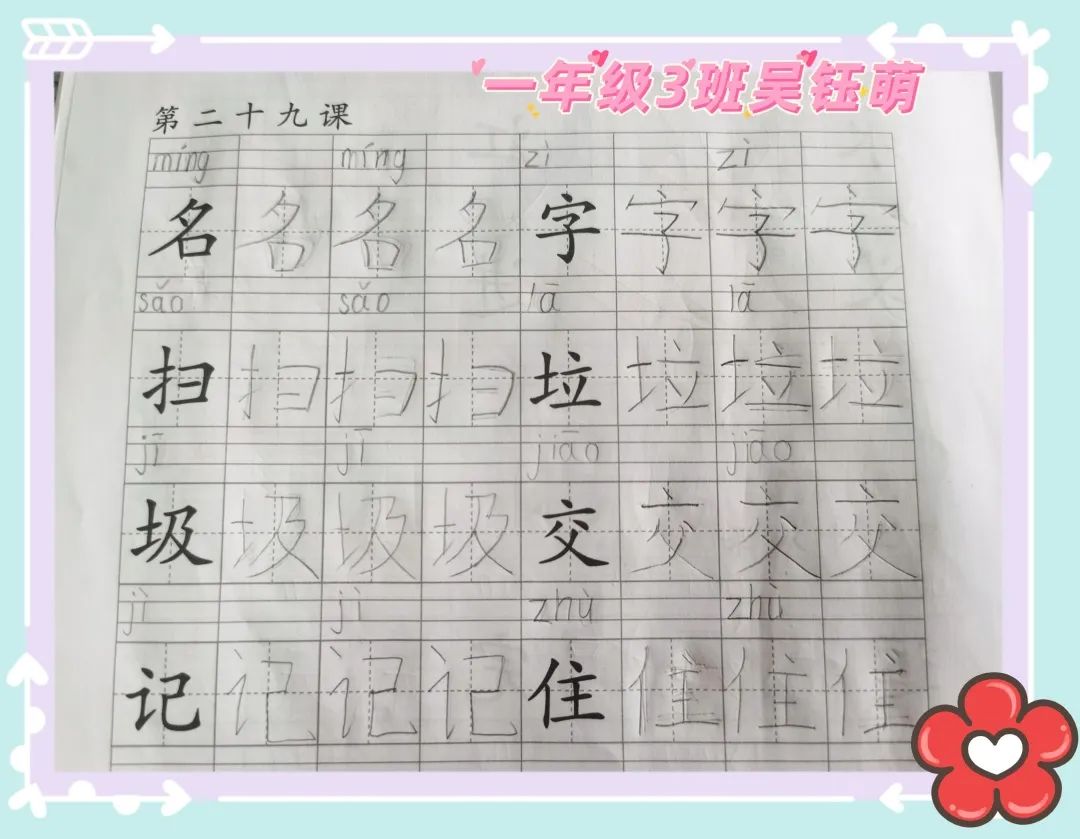 一年级3班吴钰萌
第二十九课
míng míng zì zì
名名名名字字字字
sǎo sǎo lā lā
扫扫扫扫垃垃垃垃
jī jī jiāo jiāo
圾圾圾圾交交交交
jì jì zhù zhù
记记记记住住住住